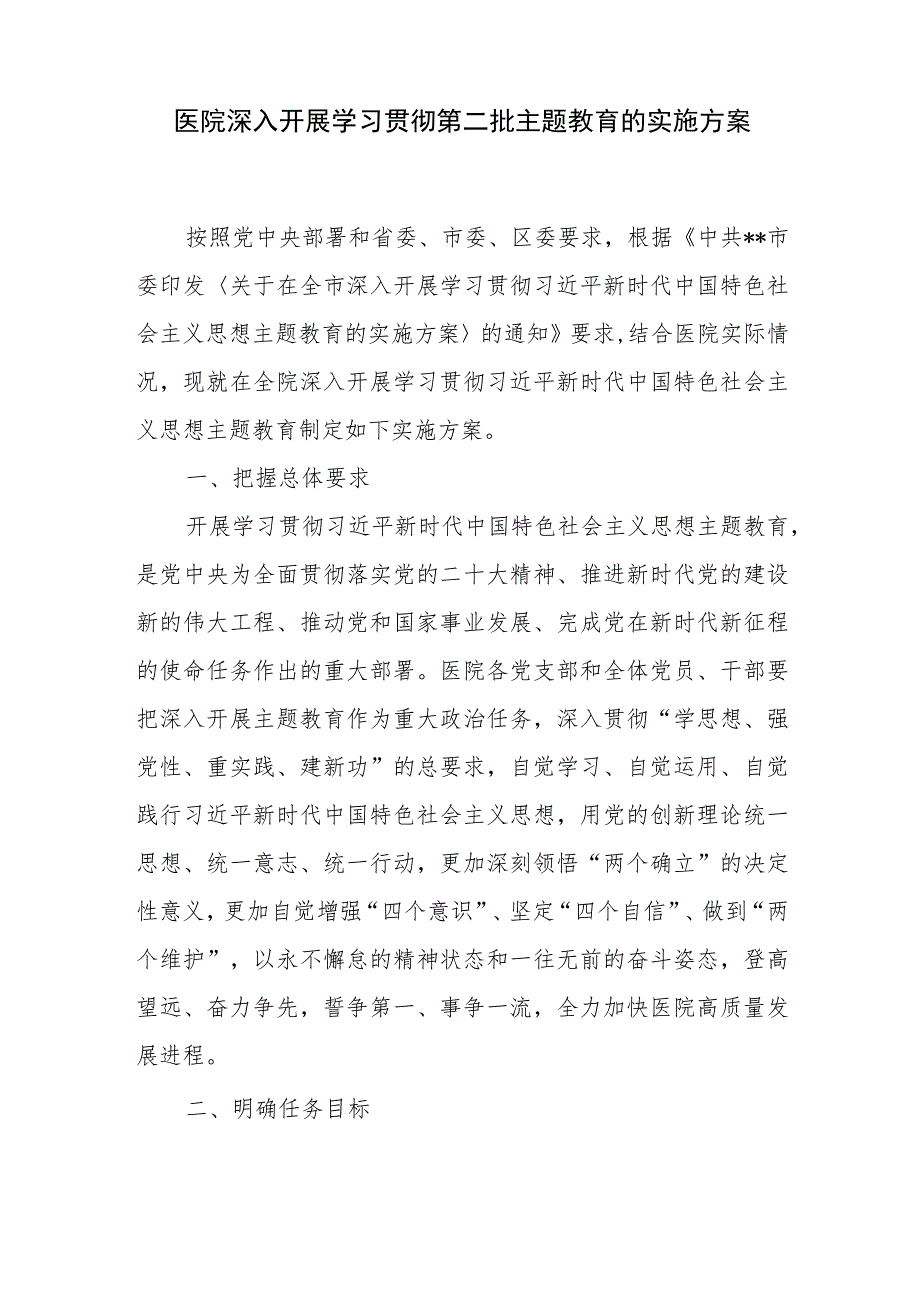 医院深入开展学习贯彻第二批主题教育的实施方案
按照党中央部署和省委、市委、区委要求，根据《中共**市
委印发〈关于在全市深入开展学习贯彻习近平新时代中国特色社
会主义思想主题教育的实施方案〉的通知》要求,结合医院实际情
况，现就在全院深入开展学习贯彻习近平新时代中国特色社会主
义思想主题教育制定如下实施方案。
一、把握总体要求
开展学习贯彻习近平新时代中国特色社会主义思想主题教育，
是党中央为全面贯彻落实党的二十大精神、推进新时代党的建设
新的伟大工程、推动党和国家事业发展、完成党在新时代新征程
的使命任务作出的重大部署。医院各党支部和全体党员、干部要
把深入开展主题教育作为重大政治任务，深入贯彻“学思想、强
党性、重实践、建新功”的总要求，自觉学习、自觉运用、自觉
践行习近平新时代中国特色社会主义思想，用党的创新理论统一
思想、统一意志、统一行动，更加深刻领悟“两个确立”的决定
性意义，更加自觉增强“四个意识”、坚定“四个自信”、做到“两
个维护”，以永不懈怠的精神状态和一往无前的奋斗姿态，登高
望远、奋力争先，誓争第一、事争一流，全力加快医院高质量发
展进程。
二、明确任务目标